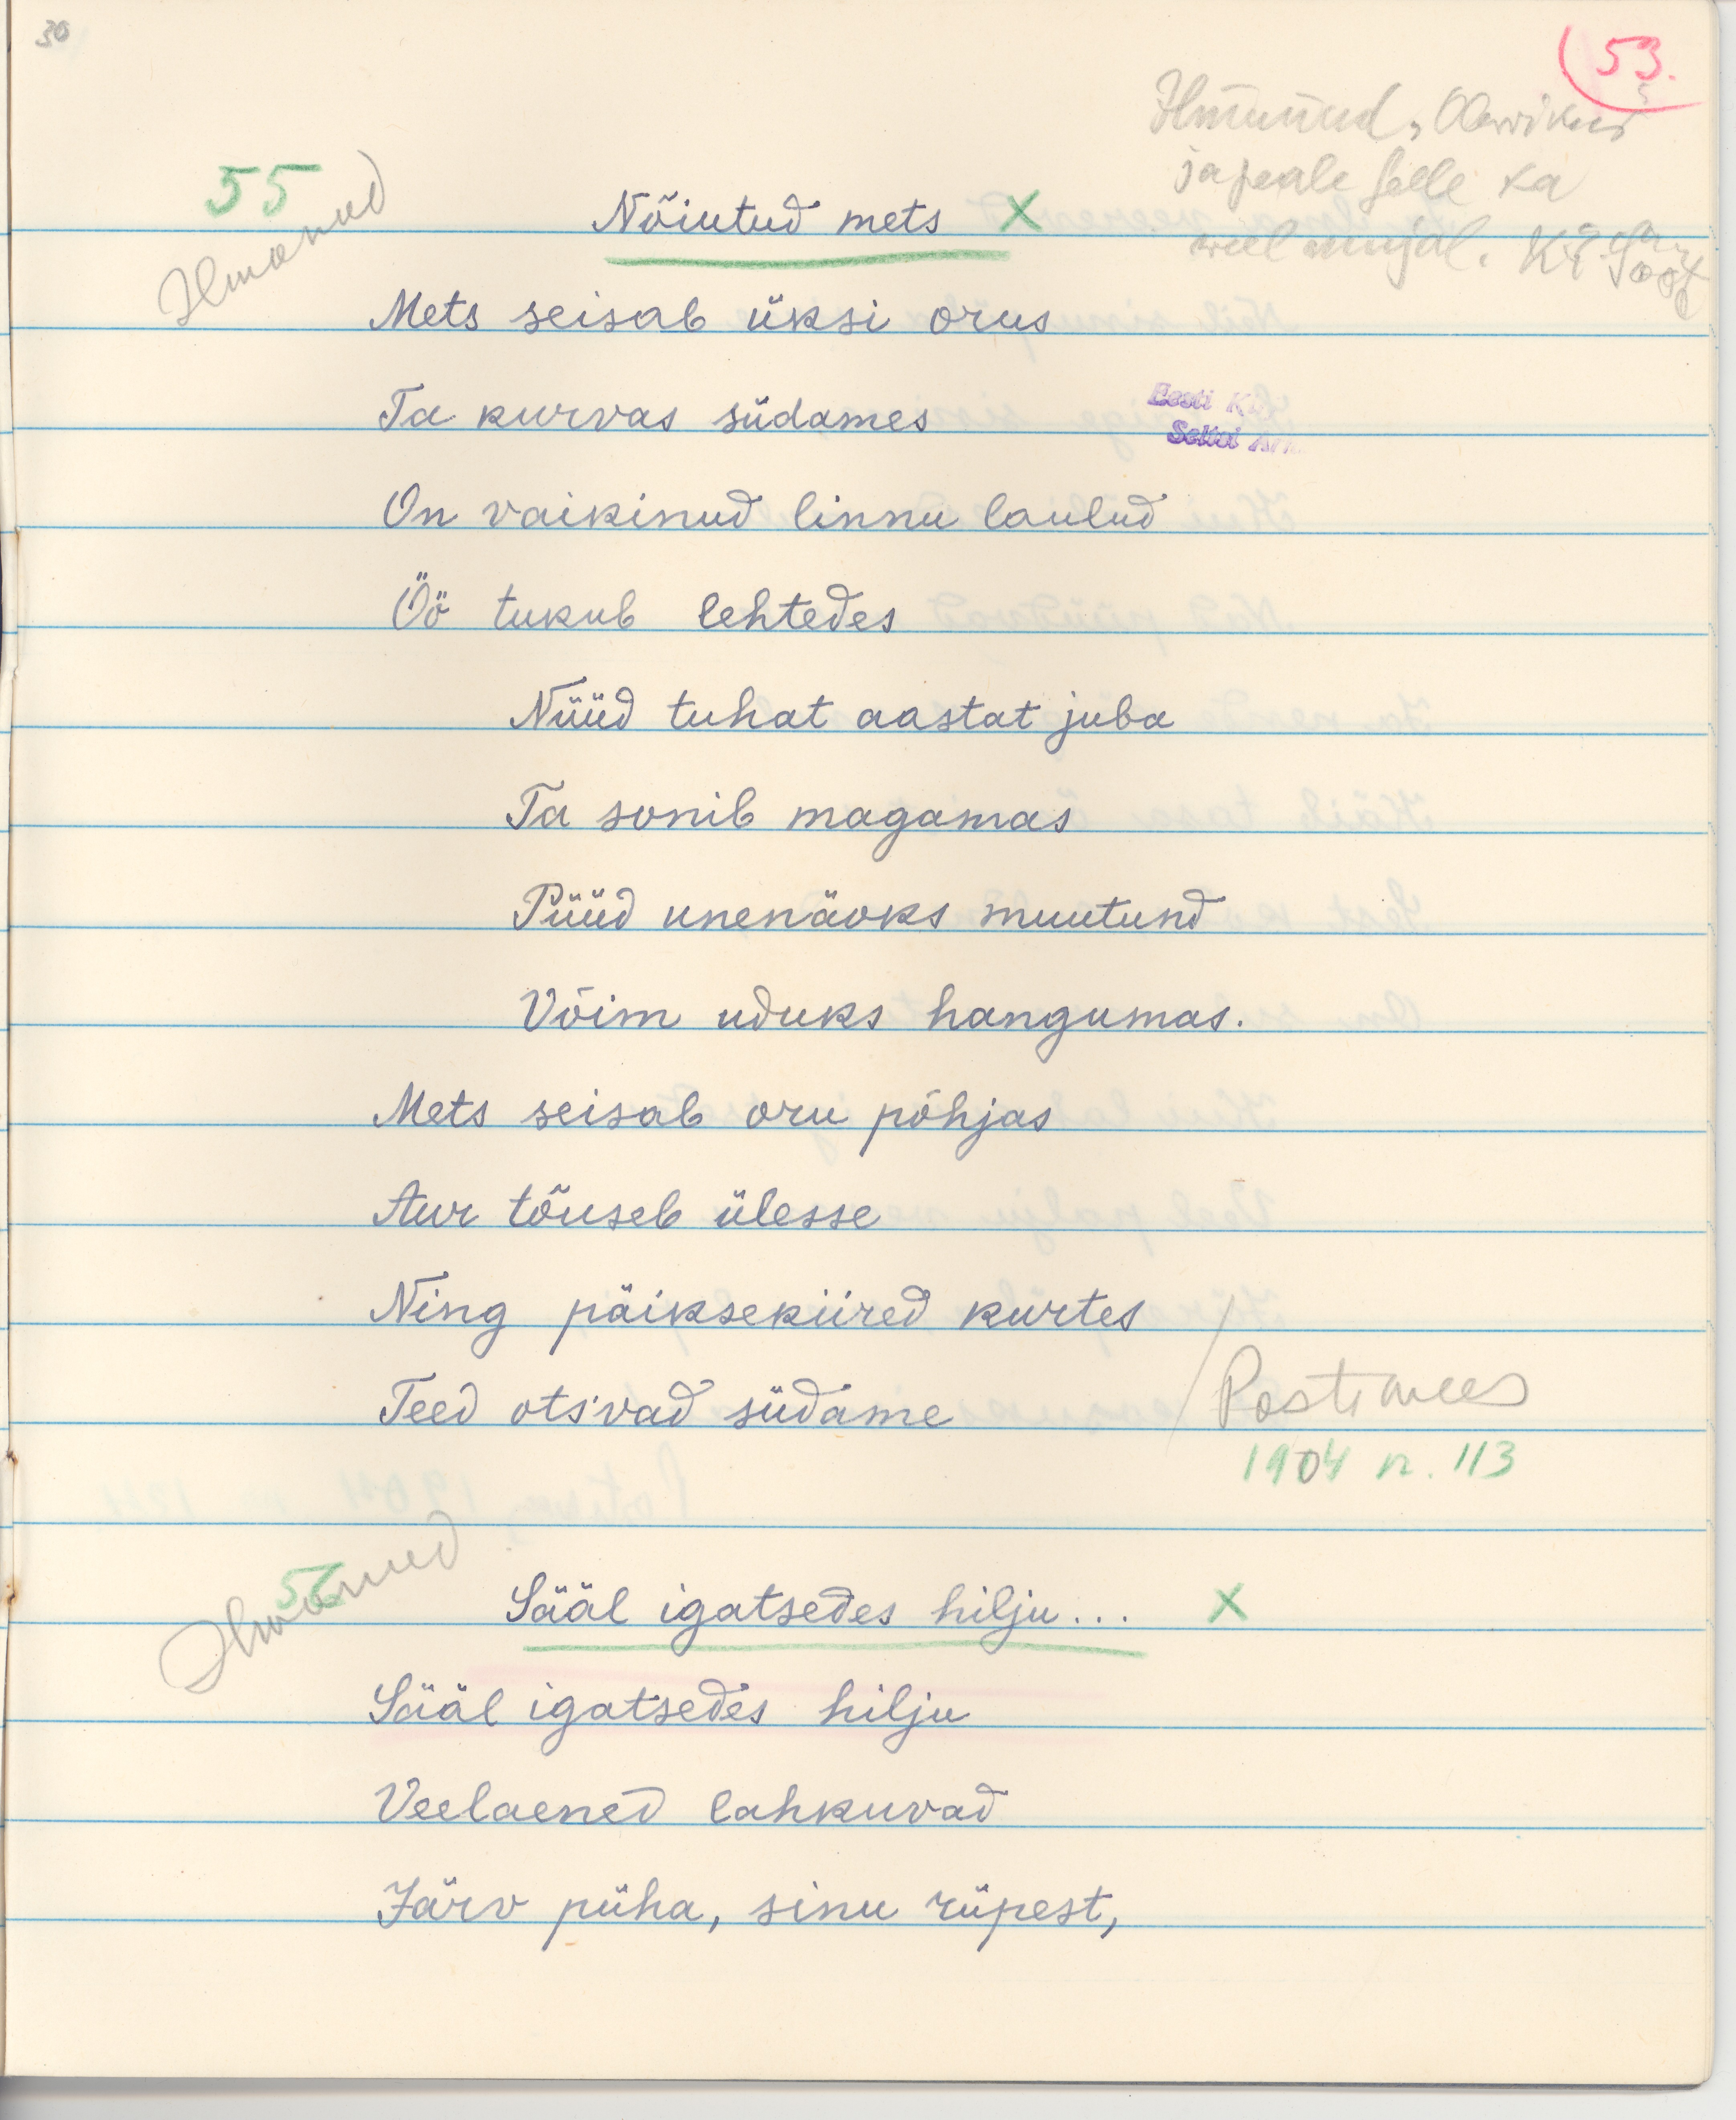 30
53.
Ilmunud
ja peale selle ka
weel mujal. K. E. Sööt
55
Ilmunud
Nõiutud mets X
Mets seisab üksi orus
Ta kurvas südames
Eesti
Seltsi
On vaikinud linnu laulud
Öö tukub lehtedes
Nüüd tuhat aastat juba
Ta sonib magamas
Püüd unenäoks muutund
Võim uduks hangumas.
Mets seisab oru põhjas
Aur tõuseb ülesse
Ning päiksekiired kurtes
Teed ots'vad südame
Postimees
1904 n. 113
56
Ilmunud
Sääl igatsedes hilju... X
Sääl igatsedes hilju
Veelaened lahkuvad
Järv püha, sinu rüpest,